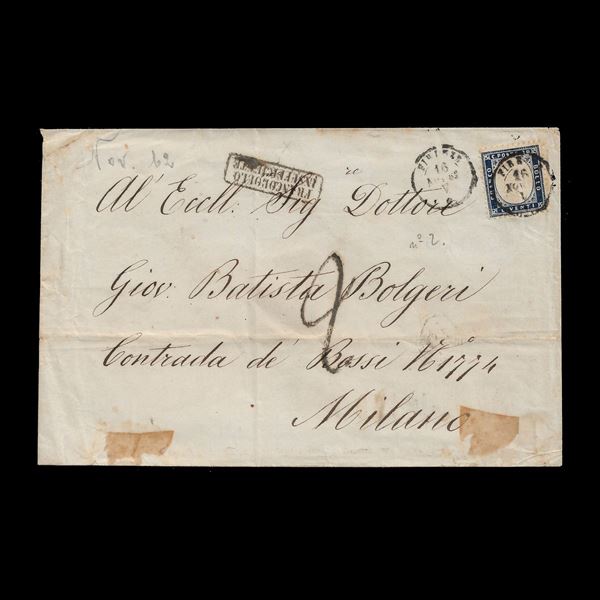 Nov. 62
FRANCOBOLLO
INSUFFICIENTE
FIRENZE
16
FIRENZE
16
NOV
FRANCO
BOLLO
C. VENTI
Al' Eccll. Sig.re Dottore
n° 2.
Giov. Batista Bolgeri
2
Contrada de' Bossi N° 1774
Milano